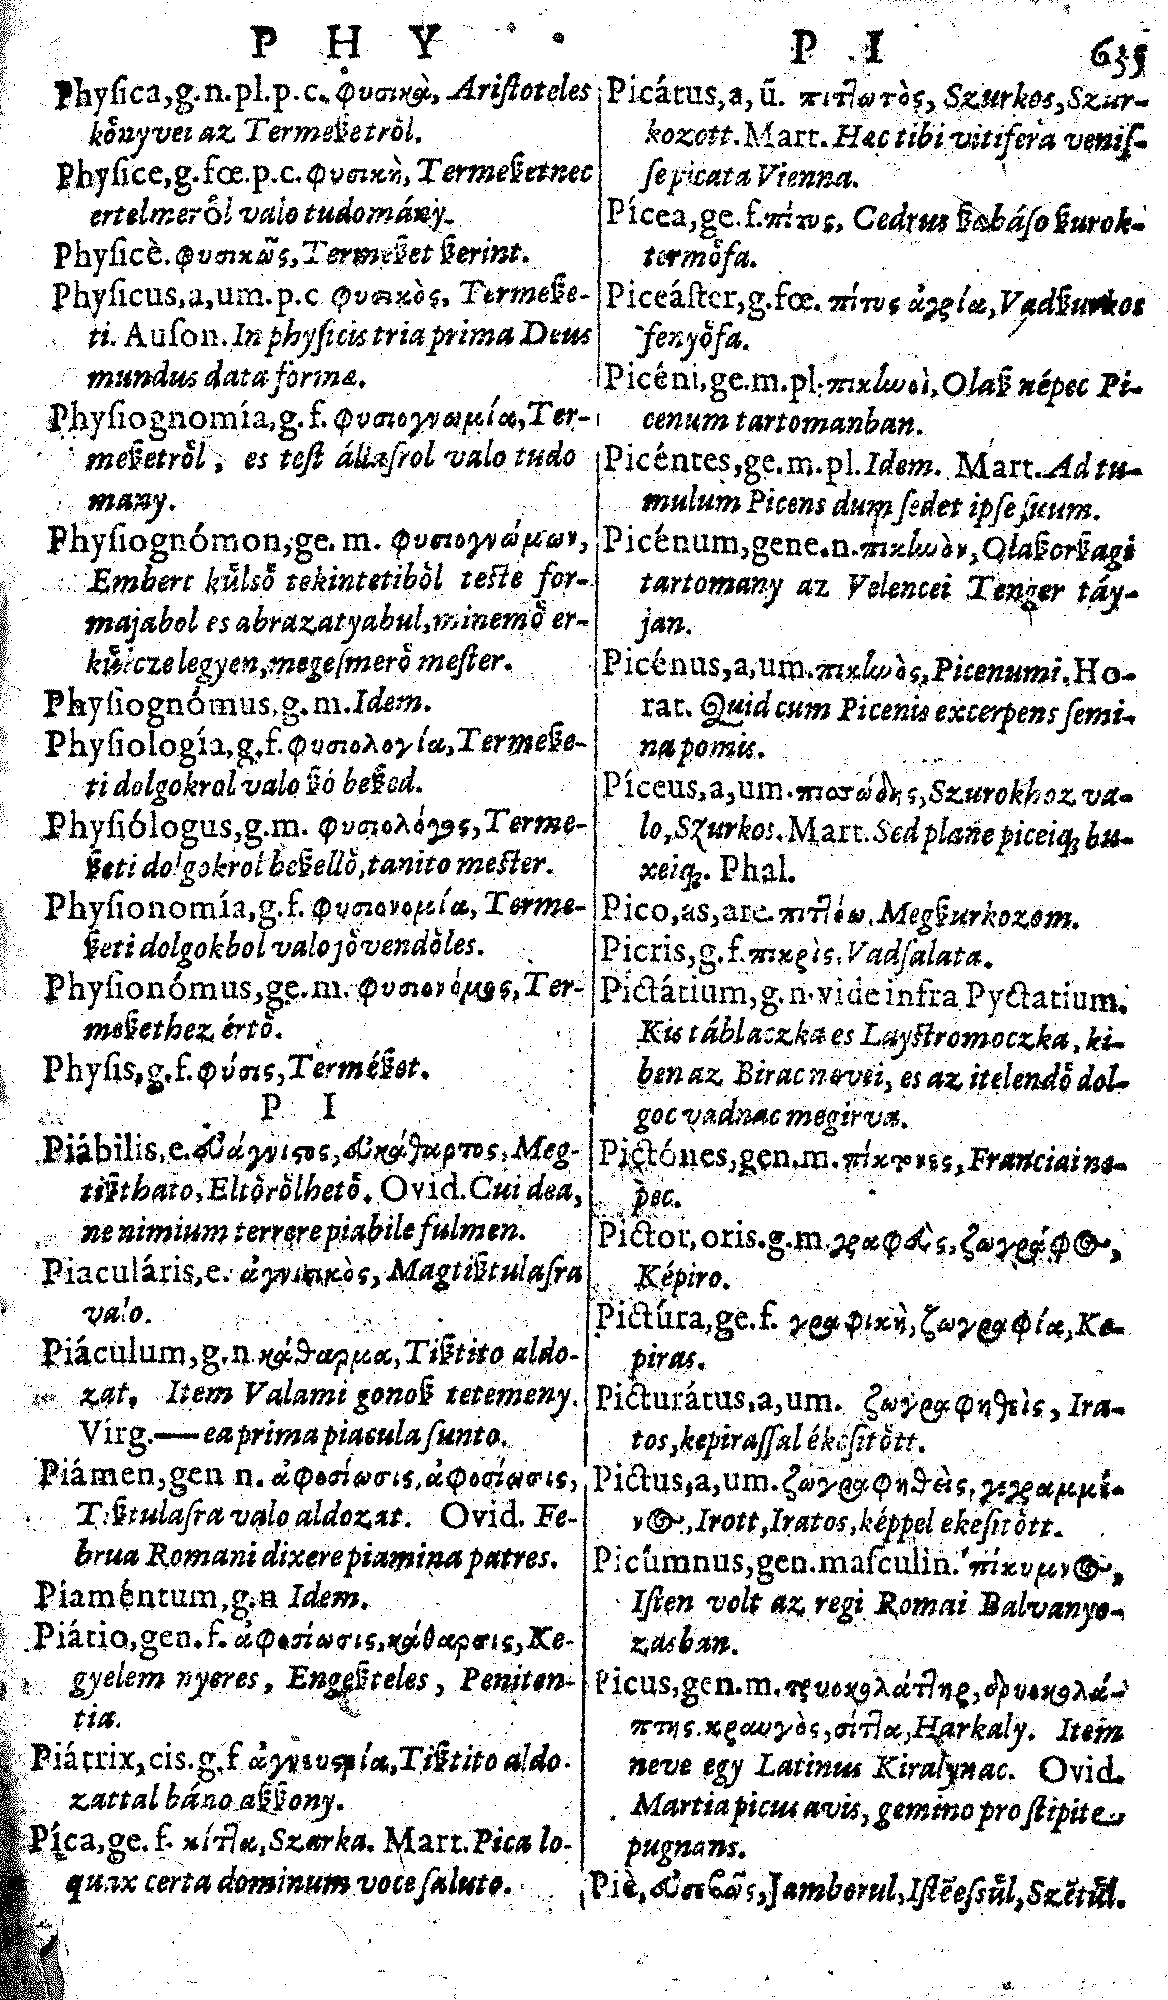 P H Y
Phyſica,g.n.pl.p.c. φυσικὰ, Ariſtoteles
kőnyvei az Termeßetről.
Phyſice,g.fœ.p.c. φυσικὴ, Termeßetnec
ertelmeről valo tudomány.
Phyſicè. φυσικῶς, Termeßet ßerint.
Phyſicus,a,um.p.c φυσικὸς, Termeße-
ti. Auſon. In phyſicis tria prima Deus
mundus data forma.
Phyſiognomía,g.f. φυσιογνωμία, Ter-
meßetről, es teſt állaſrol valo tudo
many.
Phyſiognómon,ge.m. φυσιογνώμων,
Embert kűlső tekintetiből teſte for-
majabol es abrazatyabul, minemő er-
kűlcze legyen, megeſmerő meſter.
Phyſiognómus,g.m. Idem.
Phyſiología,g.f. φυσιολογία, Termeße-
ti dolgokrol valo ßó beßed.
Phyſiólogus,g.m. φυσιολόγος, Terme-
ßeti dolgokrol beßellő, tanito meſter.
Phyſionomía,g.f. φυσιονομία, Terme-
ßeti dolgokbol valo jővendőles.
Phyſionómus,ge.m. φυσιονόμος, Ter-
meßethez értő.
Phyſis,g.f. φύσις, Terméßet.
P I
Piábilis,e. εὐάγνιστος, εὐκάθαρτος, Meg-
tißthato, Eltőrőlhető. Ovid. Cui dea,
ne nimium terrere piabile fulmen.
Piaculáris,e. ἁγνιτικὸς, Magtißtulaſra
valo.
Piáculum,g.n κάθαρμα, Tißtito aldo-
zat. Item Valami gonoß tetemeny.
Virg.—ea prima piacula ſunto.
Piámen,gen n. ἀφοσίωσις, ἀφοσίωσις,
Tißtulaſra valo aldozat. Ovid. Fe-
brua Romani dixere piamina patres.
Piaméntum,g.n Idem.
Piátio,gen.f. ἀφοσίωσις, κάθαρσις, Ke-
gyelem nyeres, Engeßteles, Peniten-
tia.
Piátrix,cis.g.f ἁγνευτρία, Tißtito aldo-
zattal báno aßßony.
Píca,ge.f. κίττα, Szarka. Mart. Pica lo-
quax certa dominum voce ſaluto.
P I 635
Picátus,a,ũ. πιττωτὸς, Szurkos, Szur-
kozott. Mart. Hæc tibi vitifera veniſ-
ſe picata Vienna.
Pícea,ge.f. πίτυς, Cedrus ßabáſo ßurok-
termőfa.
Piceáſter,g.fœ. πίτυς ἀγρία, Vadßurkos
fenyőfa.
Picéni,ge.m.pl. πικηνοὶ, Olaß népec Pi-
cenum tartomanban.
Picéntes,ge.m.pl. Idem. Mart. Ad tu-
mulum Picens dum ſedet ipſe ſuum.
Picénum,gene.n. πικηνὸν, Olaßorßagi
tartomany az Velencei Tenger táy-
jan.
Picénus,a,um. πικηνὸς, Picenumi. Ho-
rat. Quid cum Picenis excerpens ſemi-
na pomis.
Píceus,a,um. πισσώδης, Szurokhoz va-
lo, Szurkos. Mart. Sed plane piceiq; bu-
xeiq;. Phal.
Pico,as,are. πιττόω. Megßurkozom.
Picris,g.f. πικρὶς. Vadſalata.
Pictátium,g.n. vide infra Pyctatium.
Kis táblaczka es Layſtromoczka, ki-
ben az Birac nevei, es az itelendő dol-
goc vadnac megirva.
Pictónes,gen.m. πίκτονες, Franciai ne-
pec.
Pictor,oris.g.m. γραφεὺς, ζωγράφος,
Képiro.
Pictúra,ge.f. γραφικὴ, ζωγραφία, Ke-
piras.
Picturátus,a,um. ζωγραφηθεὶς, Ira-
tos, kepiraſſal ékeſitőtt.
Pictus,a,um. ζωγραφηθεὶς, γεγραμμέ-
νος, Irott, Iratos, képpel ekeſitőtt.
Picúmnus,gen.maſculin. πίκυμνος,
Iſten volt az regi Romai Balvanyo-
zasban.
Picus,gen.m. τρυοκολάπτηρ, δρυοκολά-
πτης. κραυγὸς, σίττα, Harkaly. Item
neve egy Latinus Kiralynac. Ovid.
Martia picus avis, gemino pro ſtipite
pugnans.
Piè, εὐσεβῶς, Jamborul, Iſtẽeſſűl, Szẽtűl.